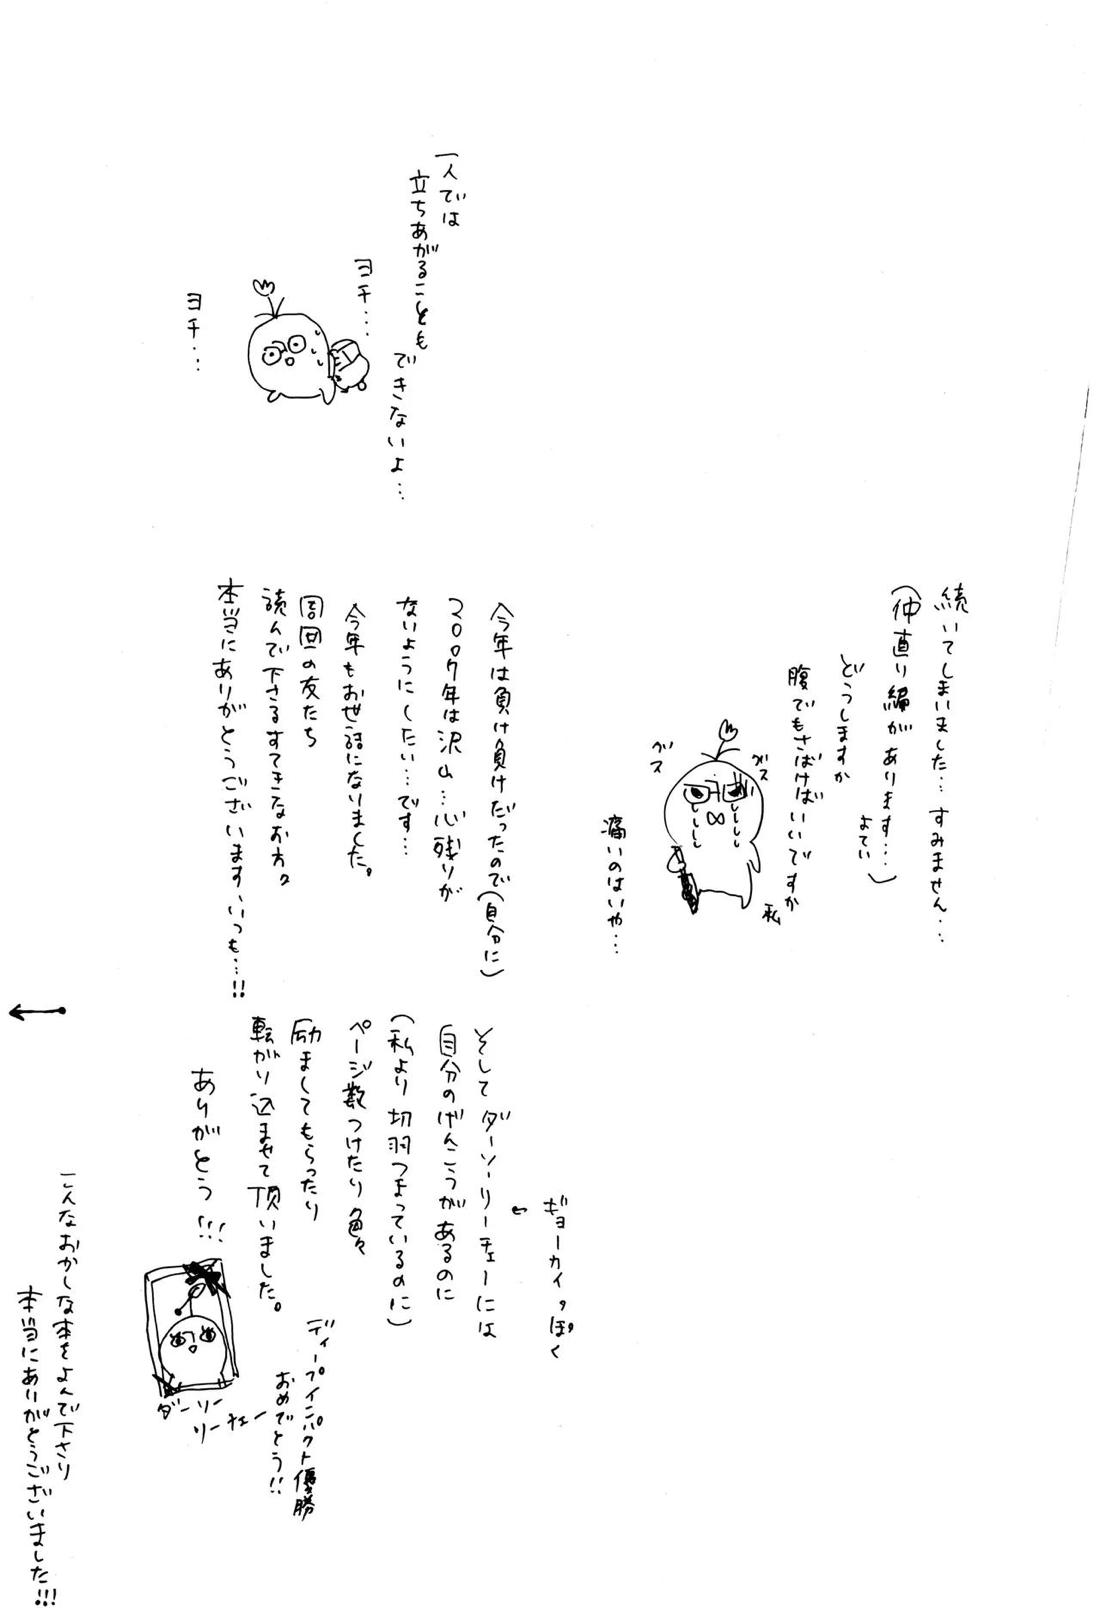 続いてしまいました…すみません…
(仲直り編があります…)
よてい
どうしますか
腹でもさばけばいいですか
私
グス
グス
痛いのはいや…
一人では
立ちあがることも
できないよ…
ヨチ…
ヨチ…
今年は負け負けだったので(自分に)
2007年は沢山…心残りが
ないようにしたい…です…
今年もお世話になりました。
周囲の友たち
読んで下さるすてきなお方々
本当にありがとうございます、いつも…!!
ギョーカイっぽく
そしてダーソーリーチェーには
自分のげんこうがあるのに
(私より切羽つまっているのに)
ページ数つけたり色々
励ましてもらったり
転がり込ませて頂いました。
ありがとう!!!
ディープインパクト優勝
おめでとう!!
ダーソー
リーチェー
こんなおかしな本をよんで下さり
本当にありがとうございました!!!